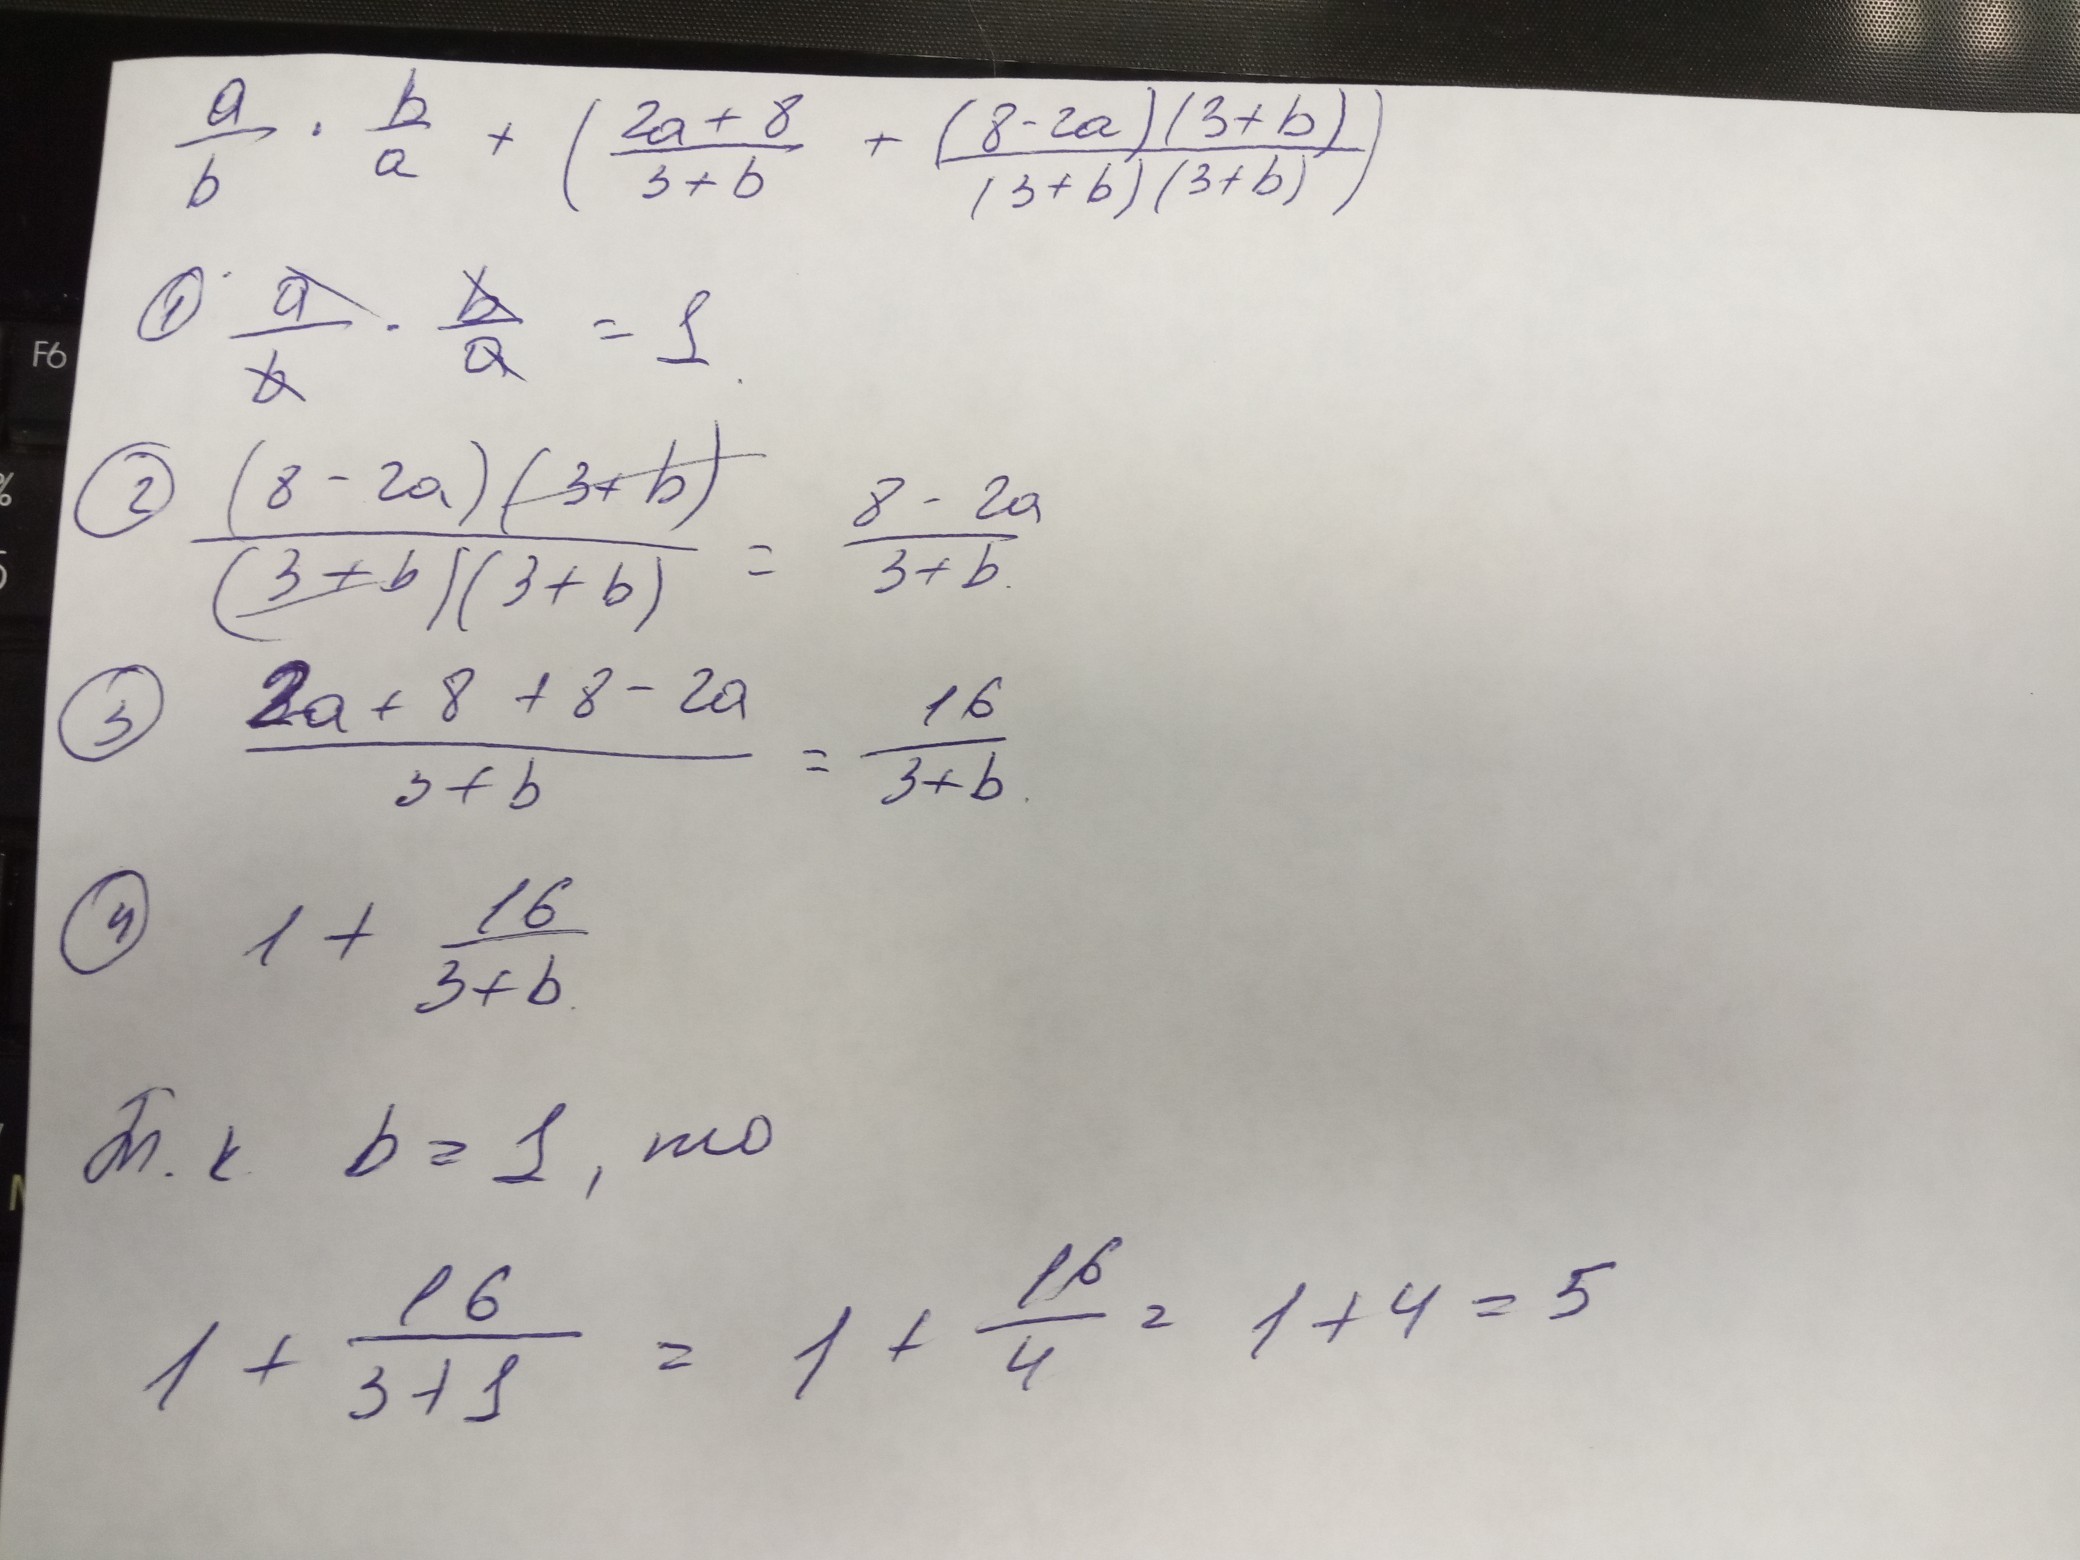 a/b · b/a + ( (2a + 8)/(3 + b) + ((8 - 2a)(3 + b))/((3 + b)(3 + b)) )
① a/b · b/a = 1
② ((8 - 2a)(3 + b))/((3 + b)(3 + b)) = (8 - 2a)/(3 + b)
③ (2a + 8 + 8 - 2a)/(3 + b) = 16/(3 + b)
④ 1 + 16/(3 + b)
Т.к. b = 1, то
1 + 16/(3 + 1) = 1 + 16/4 = 1 + 4 = 5
F6
%